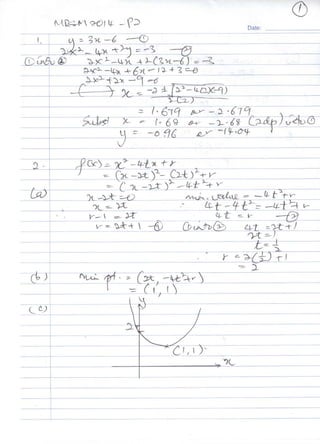 ①
NBSM 2014 - P2
Date:
1. y = 3x - 6 —①
2x² - 4x + 2y = -3 —②
① into ② 2x² - 4x + 2(3x-6) = -3
2x² - 4x + 6x - 12 + 3 = 0
2x² + 2x - 9 = 0
x = -2 ± √2² - 4(2)(-9)
2(2)
= 1.679 or -2.679
Subst x = 1.68 or -2.68 (2dp) into ①
y = -0.96 or -14.04
2. f(x) = x² - 4tx + r
= (x - 2t)² - (2t)² + r
= (x - 2t)² - 4t² + r
(a) x - 2t = 0
min. value = -4t² + r
x = 2t
4t - 4t² = -4t² + r
r - 1 = 2t
4t = r —②
r = 2t + 1 —①
① into ② 4t = 2t + 1
2t = 1
t = 1/2
r = 2(1/2) + 1
= 2
(b) min pt. = (2t, -4t² + r)
= (1, 1)
(c)
y
2
(1, 1)
x